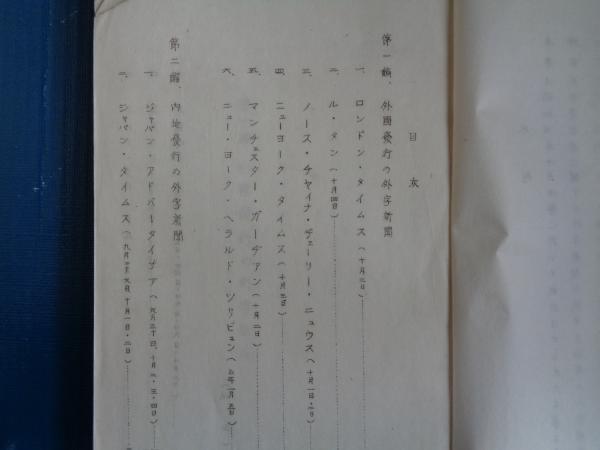 目次
第一編、外國發行の外字新聞
一、ロンドン・タイムス(十月二日)
二、ル・タン(十月四日)
三、ノース・チャイナ・デェーリー・ニュウス(十月一日・二日)
四、ニューヨーク・タイムス(十月三日)
五、マンチェスター・ガーデアン(十月二日)
六、ニュー・ヨーク・ヘラルド・ツリビュン(
第二編、内地發行の外字新聞
一、ジャパン・アドバータイザア(九月三十日、十月二・三・四日)
二、ジャパン・タイムス(九月三十日、十月一日・二日)